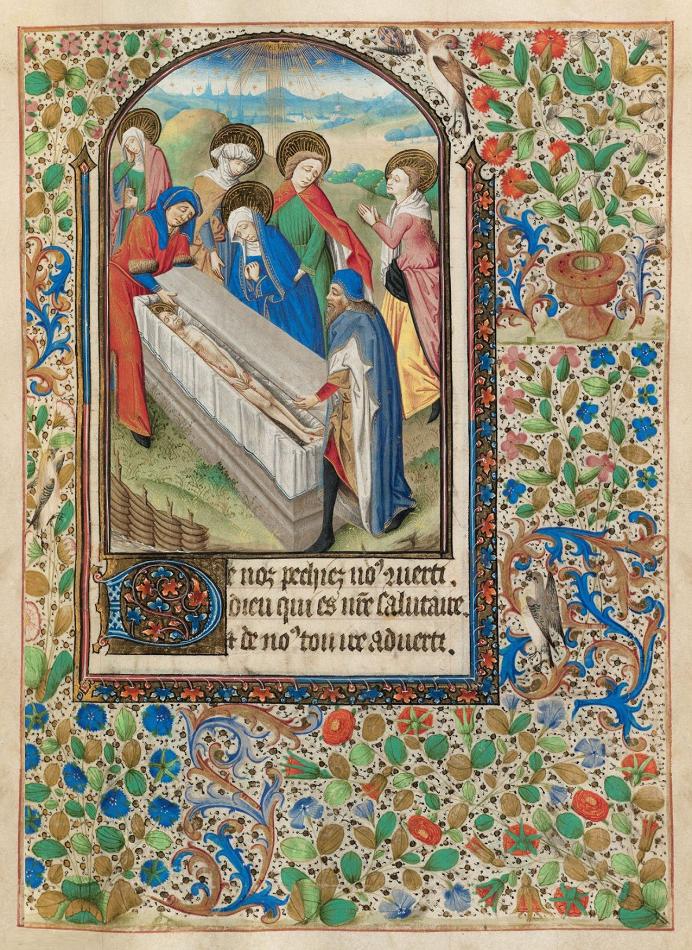 De noz pechiez no⁹ 2uerti.
dieu qui es nr̃e salutaire.
Et de no⁹ ton ire aduerti.